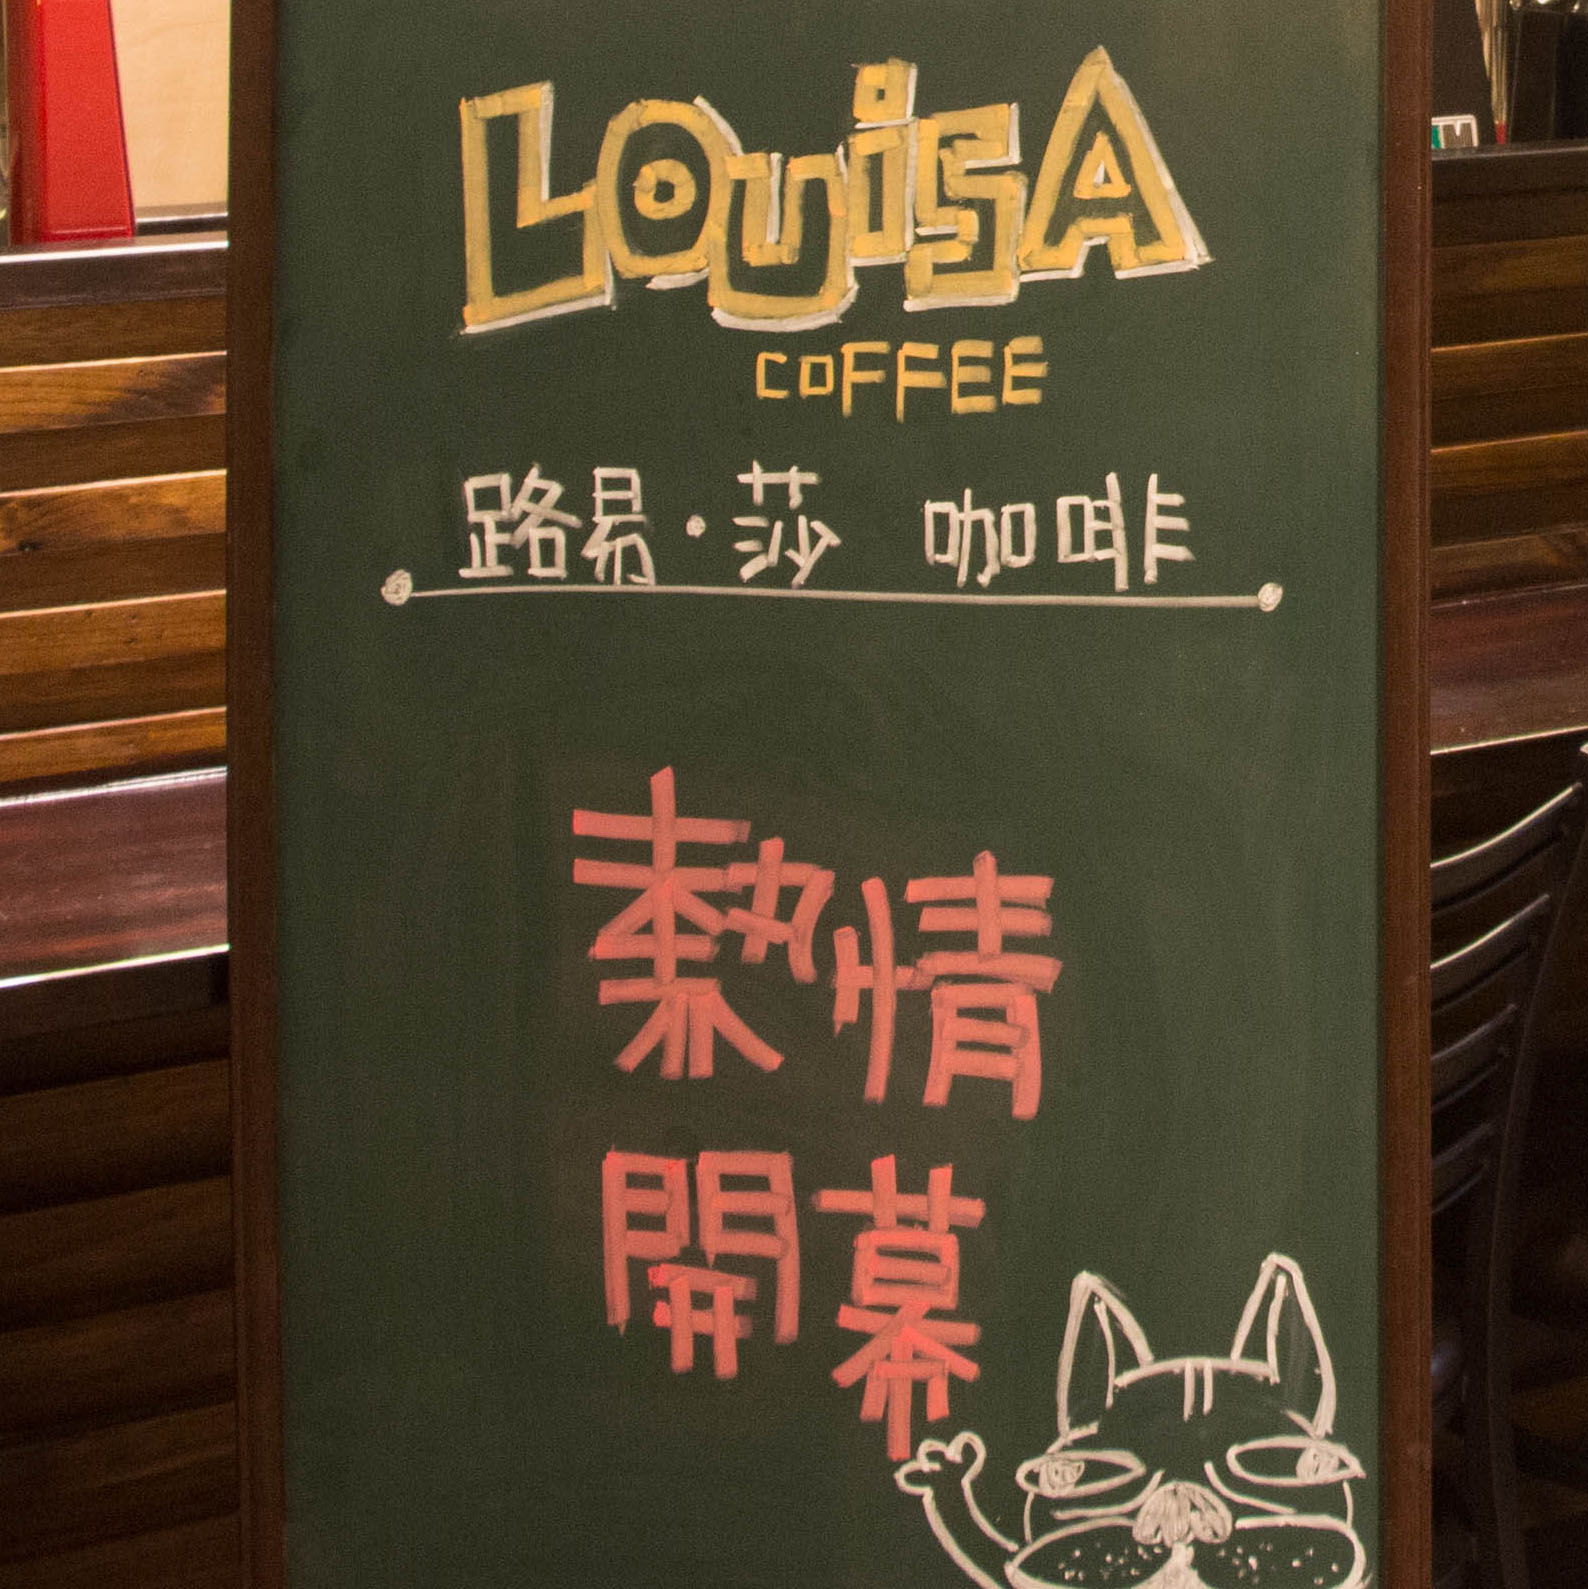 LOUiSA
COFFEE
路易·莎 咖啡
熱情
開幕